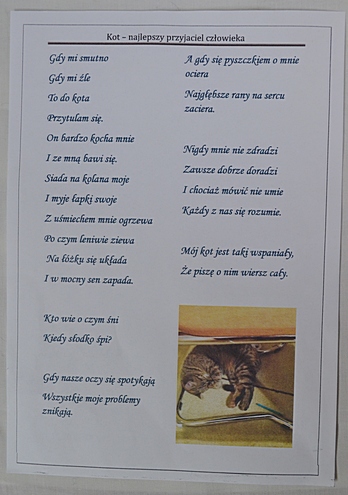 Kot – najlepszy przyjaciel człowieka
Gdy mi smutno
Gdy mi źle
To do kota
Przytulam się.
On bardzo kocha mnie
I ze mną bawi się.
Siada na kolana moje
I myje łapki swoje
Z uśmiechem mnie ogrzewa
Po czym leniwie ziewa
Na łóżku się układa
I w mocny sen zapada.
Kto wie o czym śni
Kiedy słodko śpi?
Gdy nasze oczy się spotykają
Wszystkie moje problemy
znikają.
A gdy się pyszczkiem o mnie
ociera
Najgłębsze rany na sercu
zaciera.
Nigdy mnie nie zdradzi
Zawsze dobrze doradzi
I chociaż mówić nie umie
Każdy z nas się rozumie.
Mój kot jest taki wspaniały,
Że piszę o nim wiersz cały.